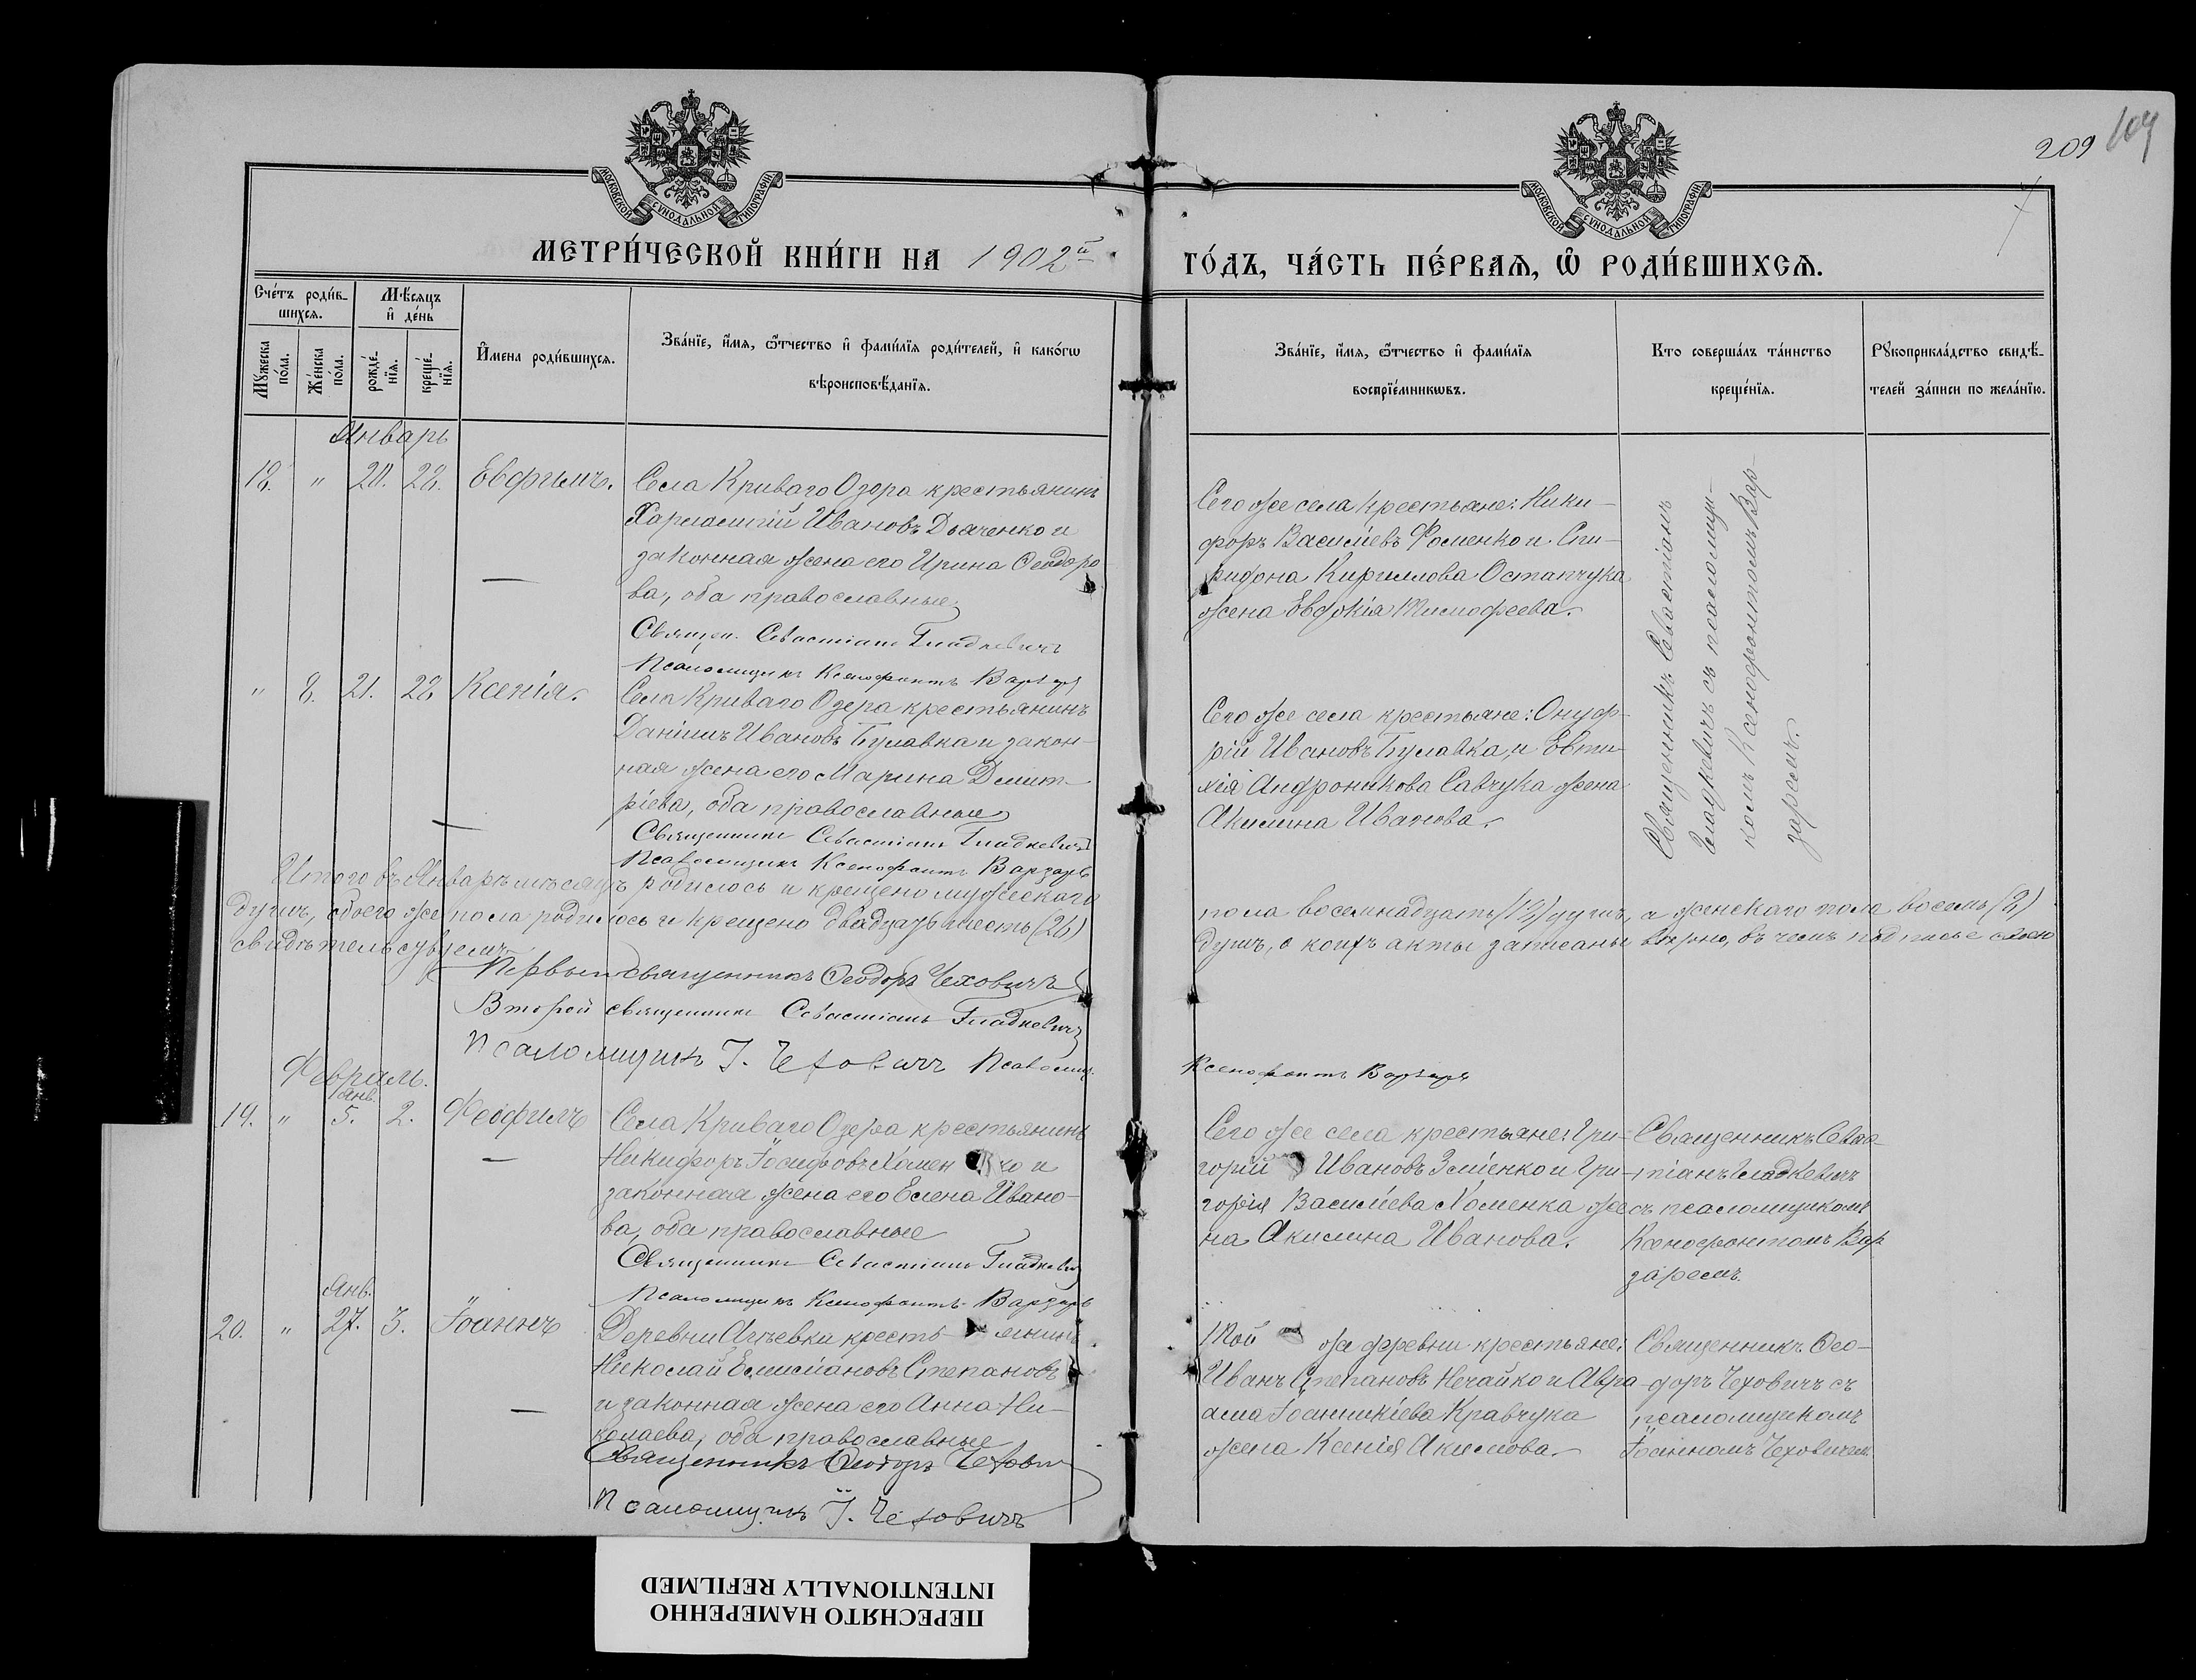 209 104
МОСКОВСКОЙ СѴНОДАЛЬНОЙ ТИПОГРАФІИ
МОСКОВСКОЙ СѴНОДАЛЬНОЙ ТИПОГРАФІИ
МЕТРИ́ЧЕСКОЙ КНИ́ГИ НА 1902й
ГО́ДЪ, ЧА́СТЬ ПЕ́РВАѦ, Ѿ РОДИ́ВШИХСѦ.
Сче́тъ роди́в-
шихсѧ.
Мꙋжеска по́ла.
Же́нска по́ла.
Мѣ́сѧцъ
и҆ де́нь
рожде́-
нїѧ.
креще́-
нїѧ.
И҆мена роди́вшихсѧ.
Зва́нїе, и҆́мѧ, ѻ҆́тчество и҆ фами́лїѧ роди́телей, и҆ како́гѡ
вѣроисповѣ́данїѧ.
Зва́нїе, и҆́мѧ, ѻ҆́тчество и҆ фами́лїѧ
воспрїе́мникѡвъ.
Кто соверша́лъ та́инство
креще́нїѧ.
Рꙋкоприкла́дство свидѣ́-
телей за́писи по жела́нїю.
Январь
18. " 20. 28. Евфимъ.
Села Криваго Озера крестьянинъ
Харлампій Ивановъ Дьяченко и
законная жена его Ирина Ѳеодоро
ва, оба православные
Священ. Севастіанъ Гладкевичъ
Псаломщикъ Ксенофонтъ Варзарь
Сего же села крестьяне: Ники-
форъ Василіевъ Фоменко и Спи-
ридона Кириллова Остапчука
жена Евдокія Тимофеева.
Священникъ Севастіанъ
Гладкевичъ съ псаломщи-
комъ Ксенофонтомъ Вар-
заремъ.
" 8. 21. 28 Ксенія.
Села Криваго Озера крестьянинъ
Даніилъ Ивановъ Булавка и закон-
ная жена его Марина Димит-
ріева, оба православные
Священникъ Севастіанъ Гладкевичъ
Псаломщикъ Ксенофонтъ Варзарь
Сего же села крестьяне: Онуф-
рій Ивановъ Булавка, и Евти-
хія Андроникова Савчука жена
Акилина Иванова.
Итого въ Январѣ мѣсяцѣ родилось и крещено мужескаго
пола восемнадцать (18) душъ, а женскаго пола восемь (8)
душъ, обоего же пола родилось и крещено двадцать шесть (26)
душъ, о коихъ акты записаны вѣрно, въ чемъ подписью своею
свидѣтельствуемъ
Первый священникъ Ѳеодоръ Чеховичъ
Второй священникъ Севастіанъ Гладкевичъ
Псаломщикъ І. Чеховичъ Псаломщ.
Ксенофонтъ Варзарь
Февраль.
Янв.
19. " 5. 2. Феофилъ
Села Криваго Озера крестьянинъ
Никифоръ Іосифовъ Хоменко и
законная жена его Елена Ивано-
ва, оба православные
Священникъ Севастіанъ Гладкевичъ
Псаломщикъ Ксенофонтъ Варзарь
Сего же села крестьяне: Гри-
горій Ивановъ Зміенко и Гри-
горія Васильева Хоменка же
на Акилина Иванова.
Священникъ Севас-
тіанъ Гладкевичъ
съ псаломщикомъ
Ксенофонтомъ Вар
заремъ.
Янв.
20. " 27. 3. Іоаннъ
Деревни крестьянинъ
Николай Емиліановъ Степановъ
и законная жена его Анна Ни-
колаева, оба православные
Священникъ Ѳеодоръ Чехович
Псаломщикъ І. Чеховичъ
Той же деревни крестьяне:
Иванъ Степановъ Нечайко и Авра-
ама Іоанникіева Кравчука
жена Ксенія Акимова.
Священникъ Ѳео-
доръ Чеховичъ съ
псаломщикомъ
Іоанномъ Чеховичемъ.
ПЕРЕСНЯТО НАМЕРЕННО
INTENTIONALLY REFILMED